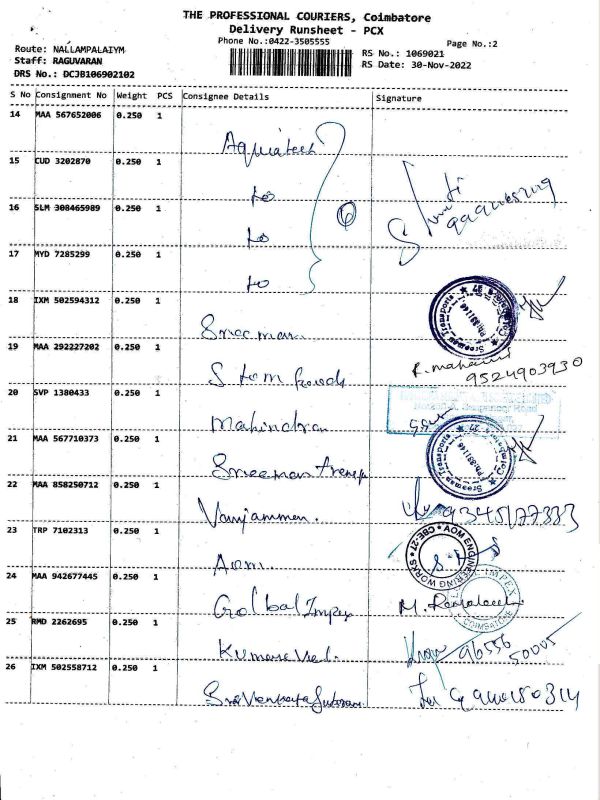 THE PROFESSIONAL COURIERS, Coimbatore
Delivery Runsheet - PCX
Phone No.:0422-3505555
Page No.:2
Route: NALLAMPALAIYM
Staff: RAGUVARAN
DRS No.: DCJB106902102
RS No.: 1069021
RS Date: 30-Nov-2022
S No Consignment No Weight PCS Consignee Details Signature
14 MAA 567652006 0.250 1
Aquatech
15 CUD 3202870 0.250 1
to
16 SLM 308465989 0.250 1
to
6
17 MYD 7285299 0.250 1
to
18 IXM 502594312 0.250 1
Sreeman
Sreeman Transports
19 MAA 292227202 0.250 1
R. mahavel
9524903930
20 SVP 1380433 0.250 1
Mahindran
21 MAA 567710373 0.250 1
Sreeman transp
Sreeman Transports
22 MAA 858250712 0.250 1
Vanjamman.
9345177383
23 TRP 7102313 0.250 1
Aom.
AOM ENGINEERING WORKS CBE-27
24 MAA 942677445 0.250 1
Golbal Impex
IMPEX
COIMBATORE
25 RMD 2262695 0.250 1
Kumaravel.
96556
50005
26 IXM 502558712 0.250 1